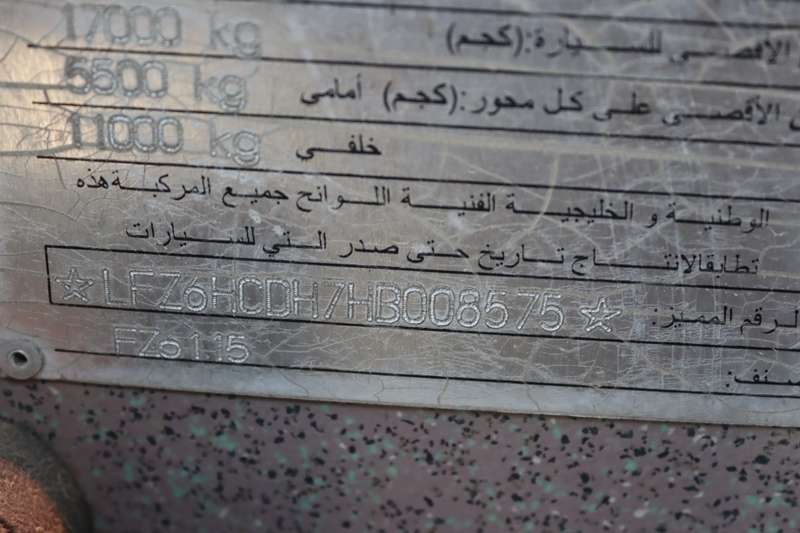 الأقصى للسيارة:(كجم) 17000 kg
الأقصى على كل محور:(كجم) أمامي 5500 kg
خلفي 11000 kg
هذه المركبة جميع اللوائح الفنية الخليجية و الوطنية
للسيارات التي صدر حتى تاريخ الانتاج تطابق
الرقم المميز: ☆LFZ6HCDH7HB008575☆
صنف: FZ6115